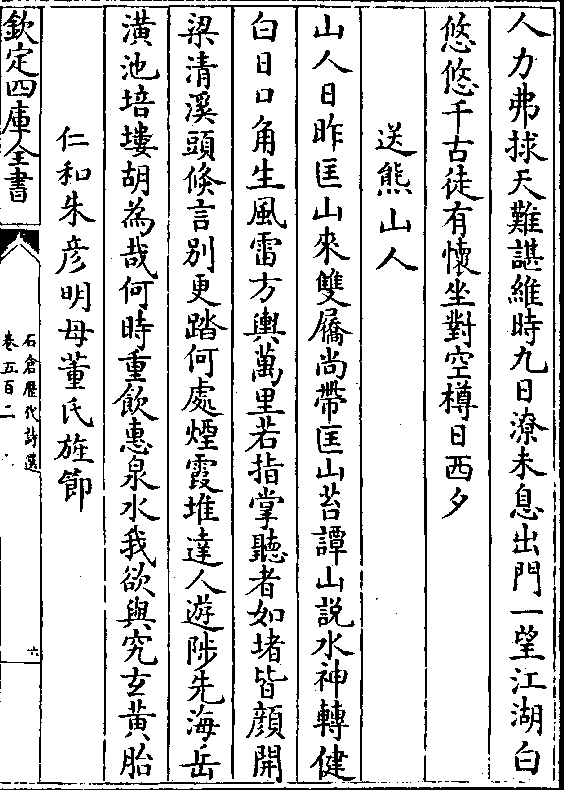 人力弗捄天難諶維時九日潦未息出門一望江湖白
悠悠千古徒有懷坐對空樽日西夕
送熊山人
山人日昨匡山來雙屩尚帶匡山苔譚山説水神轉健
白日口角生風雷方輿萬里若指掌聽者如堵皆顔開
梁清溪頭倐言别更踏何處煙霞堆達人遊陟先海岳
潢池培塿胡為哉何時重飲惠泉水我欲與究玄黄胎
仁和朱彦明母董氏旌節
欽定四庫全書
石倉歴代詩選
卷五百二
六